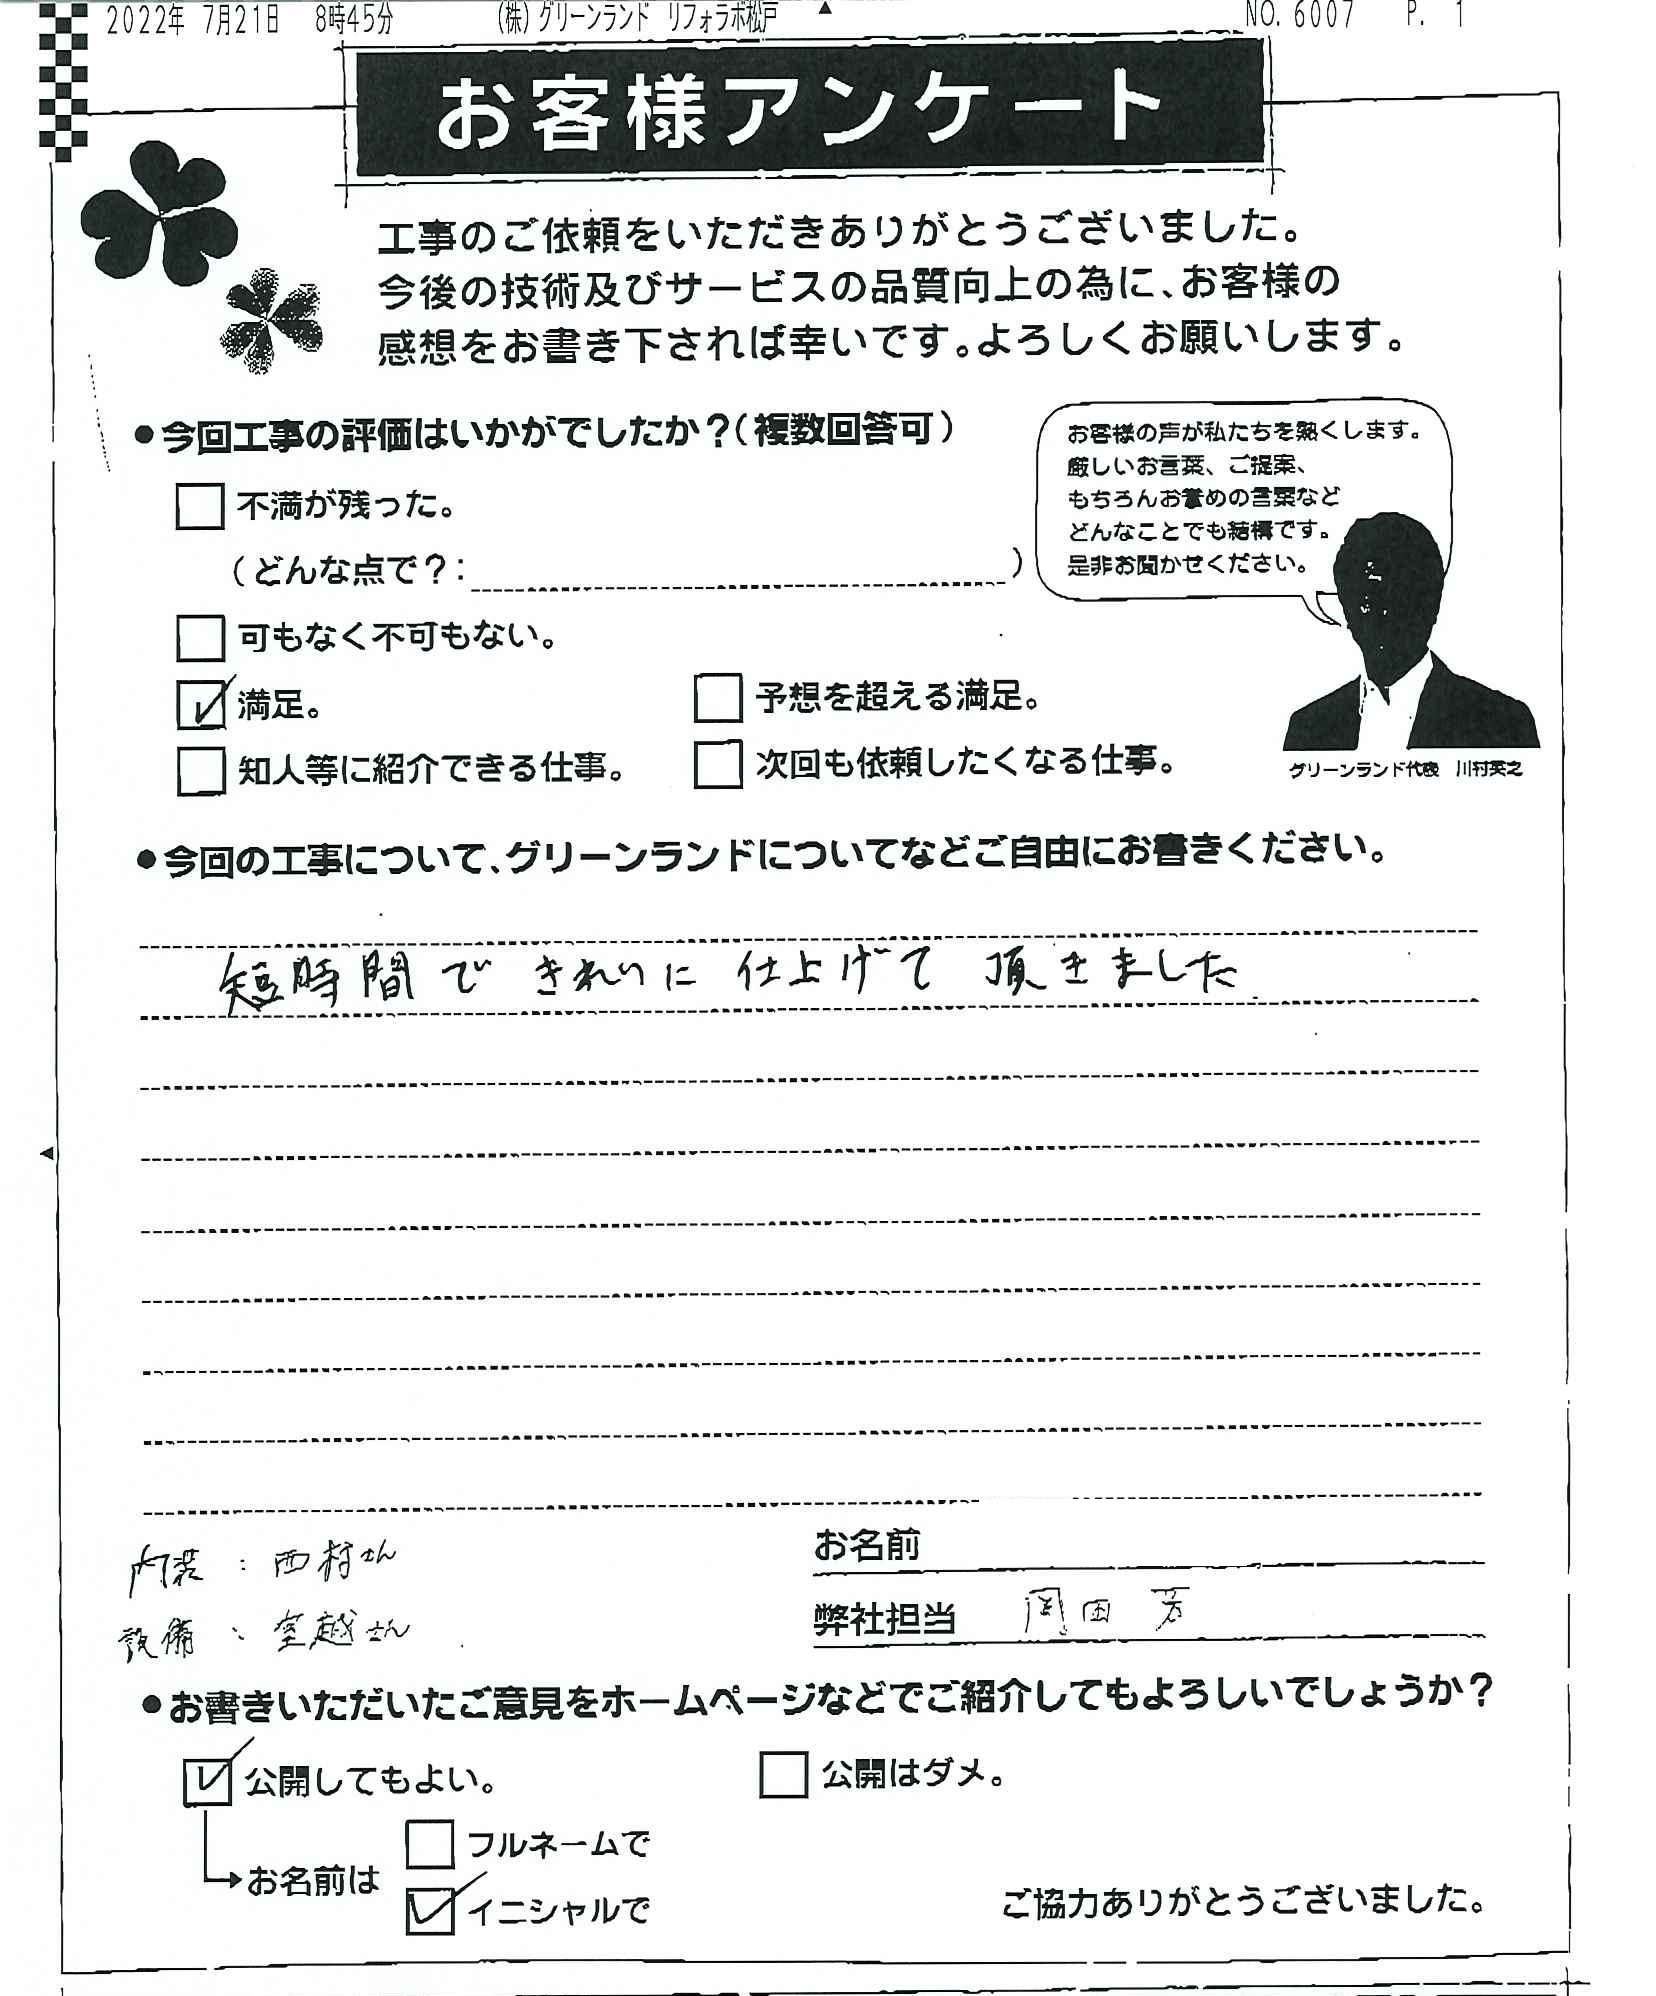 2022年 7月21日 8時45分 (株)グリーンランド リフォラボ松戸 NO. 6007 P. 1
お客様アンケート
工事のご依頼をいただきありがとうございました。
今後の技術及びサービスの品質向上の為に、お客様の
感想をお書き下されば幸いです。よろしくお願いします。
●今回工事の評価はいかがでしたか？(複数回答可)
不満が残った。
(どんな点で？: )
可もなく不可もない。
満足。
予想を超える満足。
知人等に紹介できる仕事。
次回も依頼したくなる仕事。
お客様の声が私たちを熱くします。
厳しいお言葉、ご提案、
もちろんお誉めの言葉など
どんなことでも結構です。
是非お聞かせください。
グリーンランド代表 川村英之
●今回の工事について、グリーンランドについてなどご自由にお書きください。
短時間で きれいに 仕上げて 頂きました.
内装 : 西村さん
設備 : 室越さん
お名前
弊社担当 岡田 芳
●お書きいただいたご意見をホームページなどでご紹介してもよろしいでしょうか？
公開してもよい。
公開はダメ。
お名前は
フルネームで
イニシャルで
ご協力ありがとうございました。